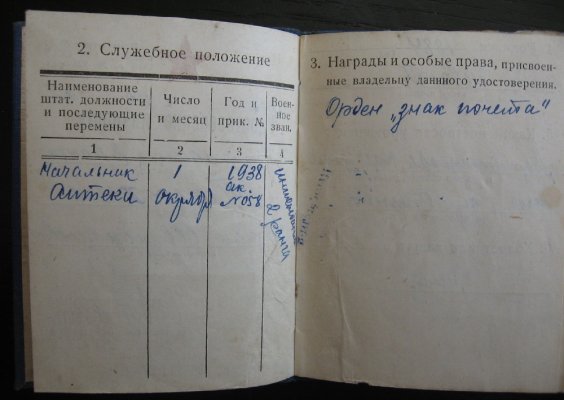 2. Служебное положение
Наименование
штат. должности
и последующие
перемены
Число
и месяц
Год и
прик. №
Воен-
ное
зван.
1
2
3
4
Начальник
Аптеки
1
октября
1938
№ 058
2 ранга
3. Награды и особые права, присвоен-
ные владельцу даннного удостоверения.
Орден „знак почета"